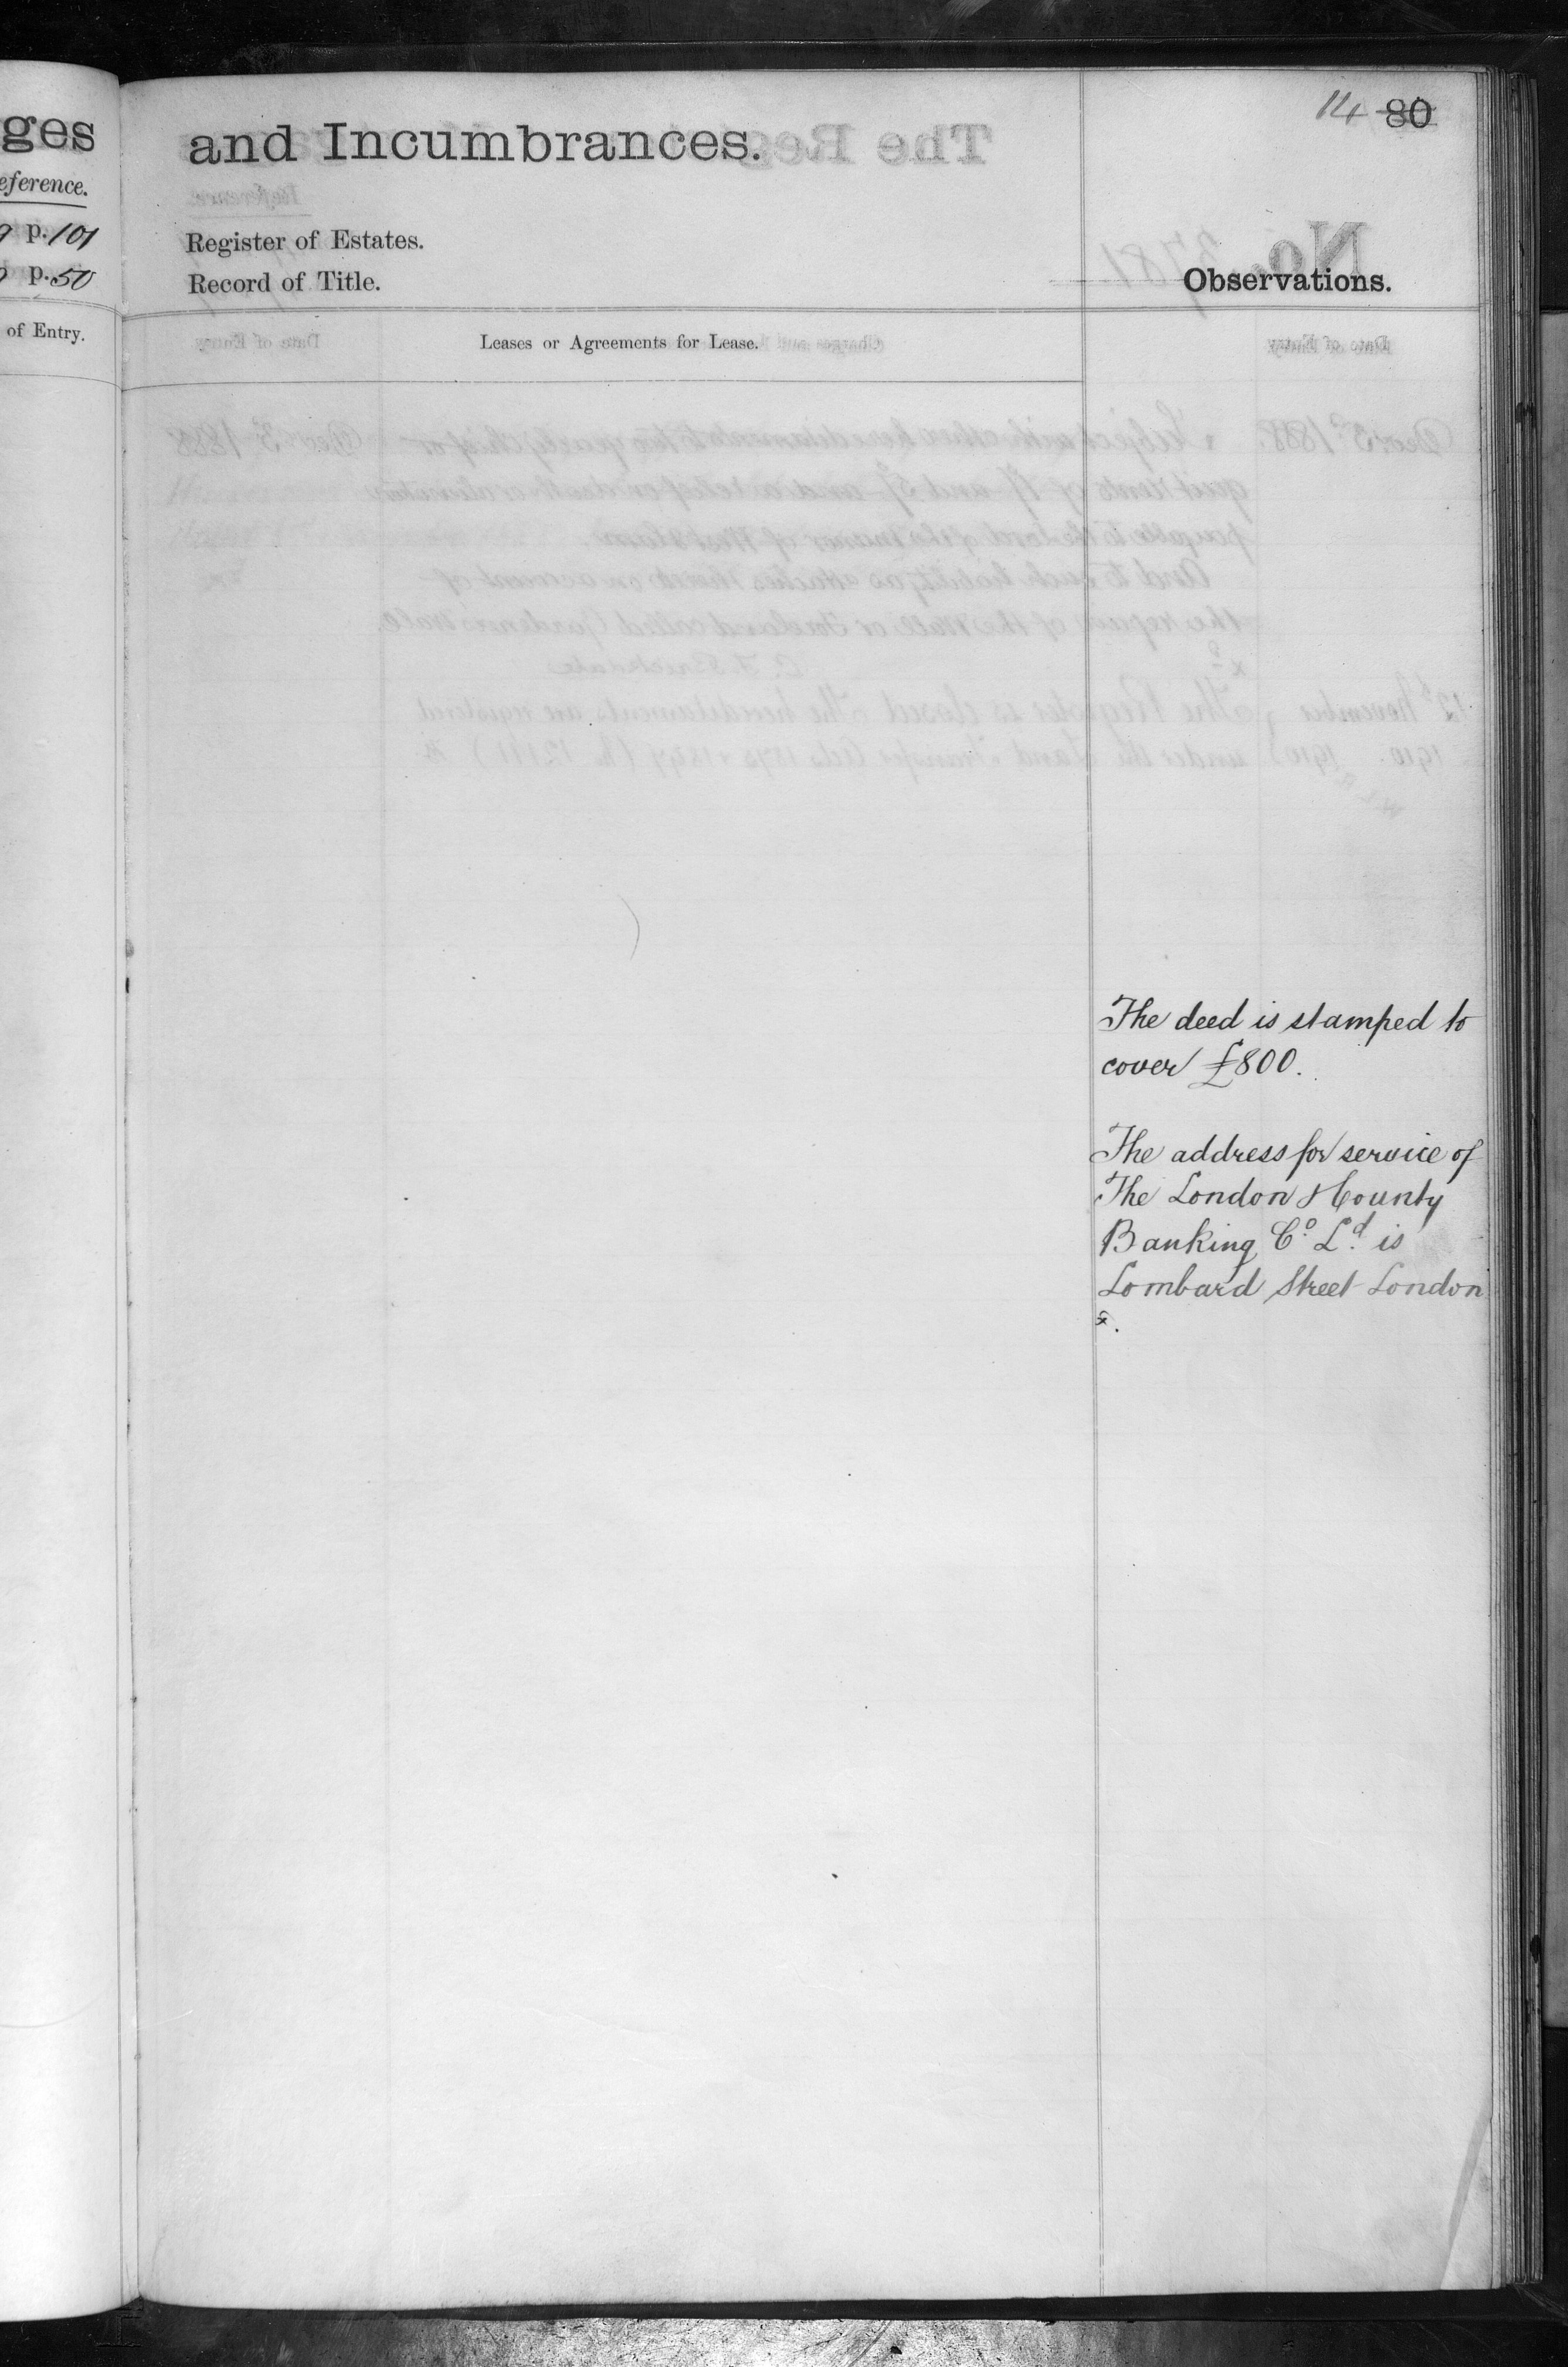 ges
eference.
p. 101
p. 50
of Entry.
14 80
and Incumbrances.
Register of Estates.
Record of Title.
Observations.
Leases or Agreements for Lease.
The deed is stamped to
cover £800.
The address for service of
The London & County
Banking Co. Ld. is
Lombard Street London